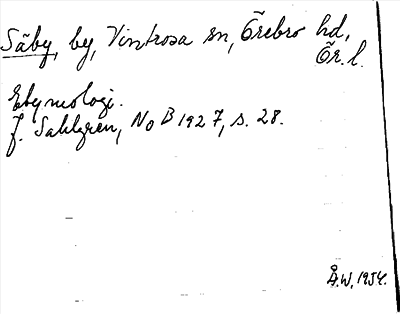 Säby, by, Vintrosa sn, Örebro hd,
Ör. l.
Etymologi.
J. Sahlgren, NoB 1927, s. 28.
Å.W, 1954.